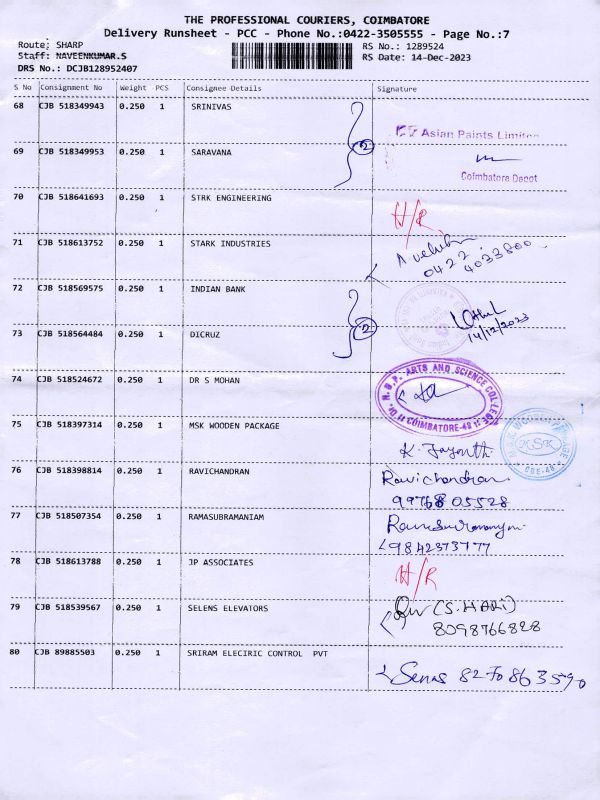 THE PROFESSIONAL COURIERS, COIMBATORE
Delivery Runsheet - PCC - Phone No.:0422-3505555 - Page No.:7
Route: SHARP
RS No.: 1289524
Staff: NAVEENKUMAR.S
RS Date: 14-Dec-2023
DRS No.: DCJB128952407
S No Consignment No Weight PCS Consignee Details Signature
68 CJB 518349943 0.250 1 SRINIVAS
Asian Paints Limited
2
69 CJB 518349953 0.250 1 SARAVANA
Coimbatore Depot
70 CJB 518641693 0.250 1 STRK ENGINEERING
H/R
71 CJB 518613752 0.250 1 STARK INDUSTRIES
0422
4033800
72 CJB 518569575 0.250 1 INDIAN BANK
2
73 CJB 518564484 0.250 1 DICRUZ
14/12/2023
74 CJB 518524672 0.250 1 DR S MOHAN
ARTS AND SCIENCE COLLEGE
COIMBATORE-48
75 CJB 518397314 0.250 1 MSK WOODEN PACKAGE
K. Jayanth
MSK
CBE-48
76 CJB 518398814 0.250 1 RAVICHANDRAN
Ravichandran
99768 05528
77 CJB 518507354 0.250 1 RAMASUBRAMANIAM
9842373777
78 CJB 518613788 0.250 1 JP ASSOCIATES
H/R
79 CJB 518539567 0.250 1 SELENS ELEVATORS
(S.HARI)
8098766828
80 CJB 89885503 0.250 1 SRIRAM ELECIRIC CONTROL PVT